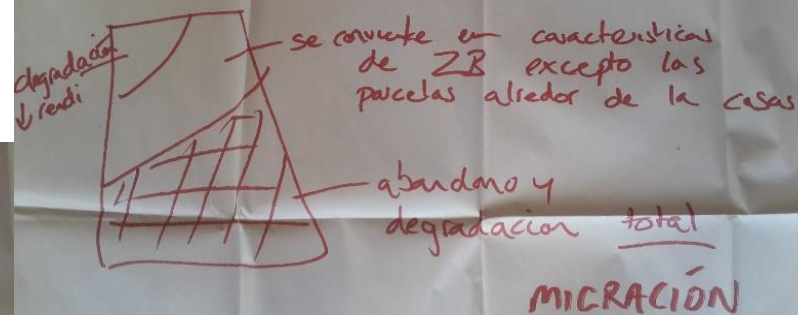 degradación
↓ rendi
se convierte en características
de ZB excepto las
parcelas alredor de la casas
abandono y
degradacion total
MIGRACIÓN